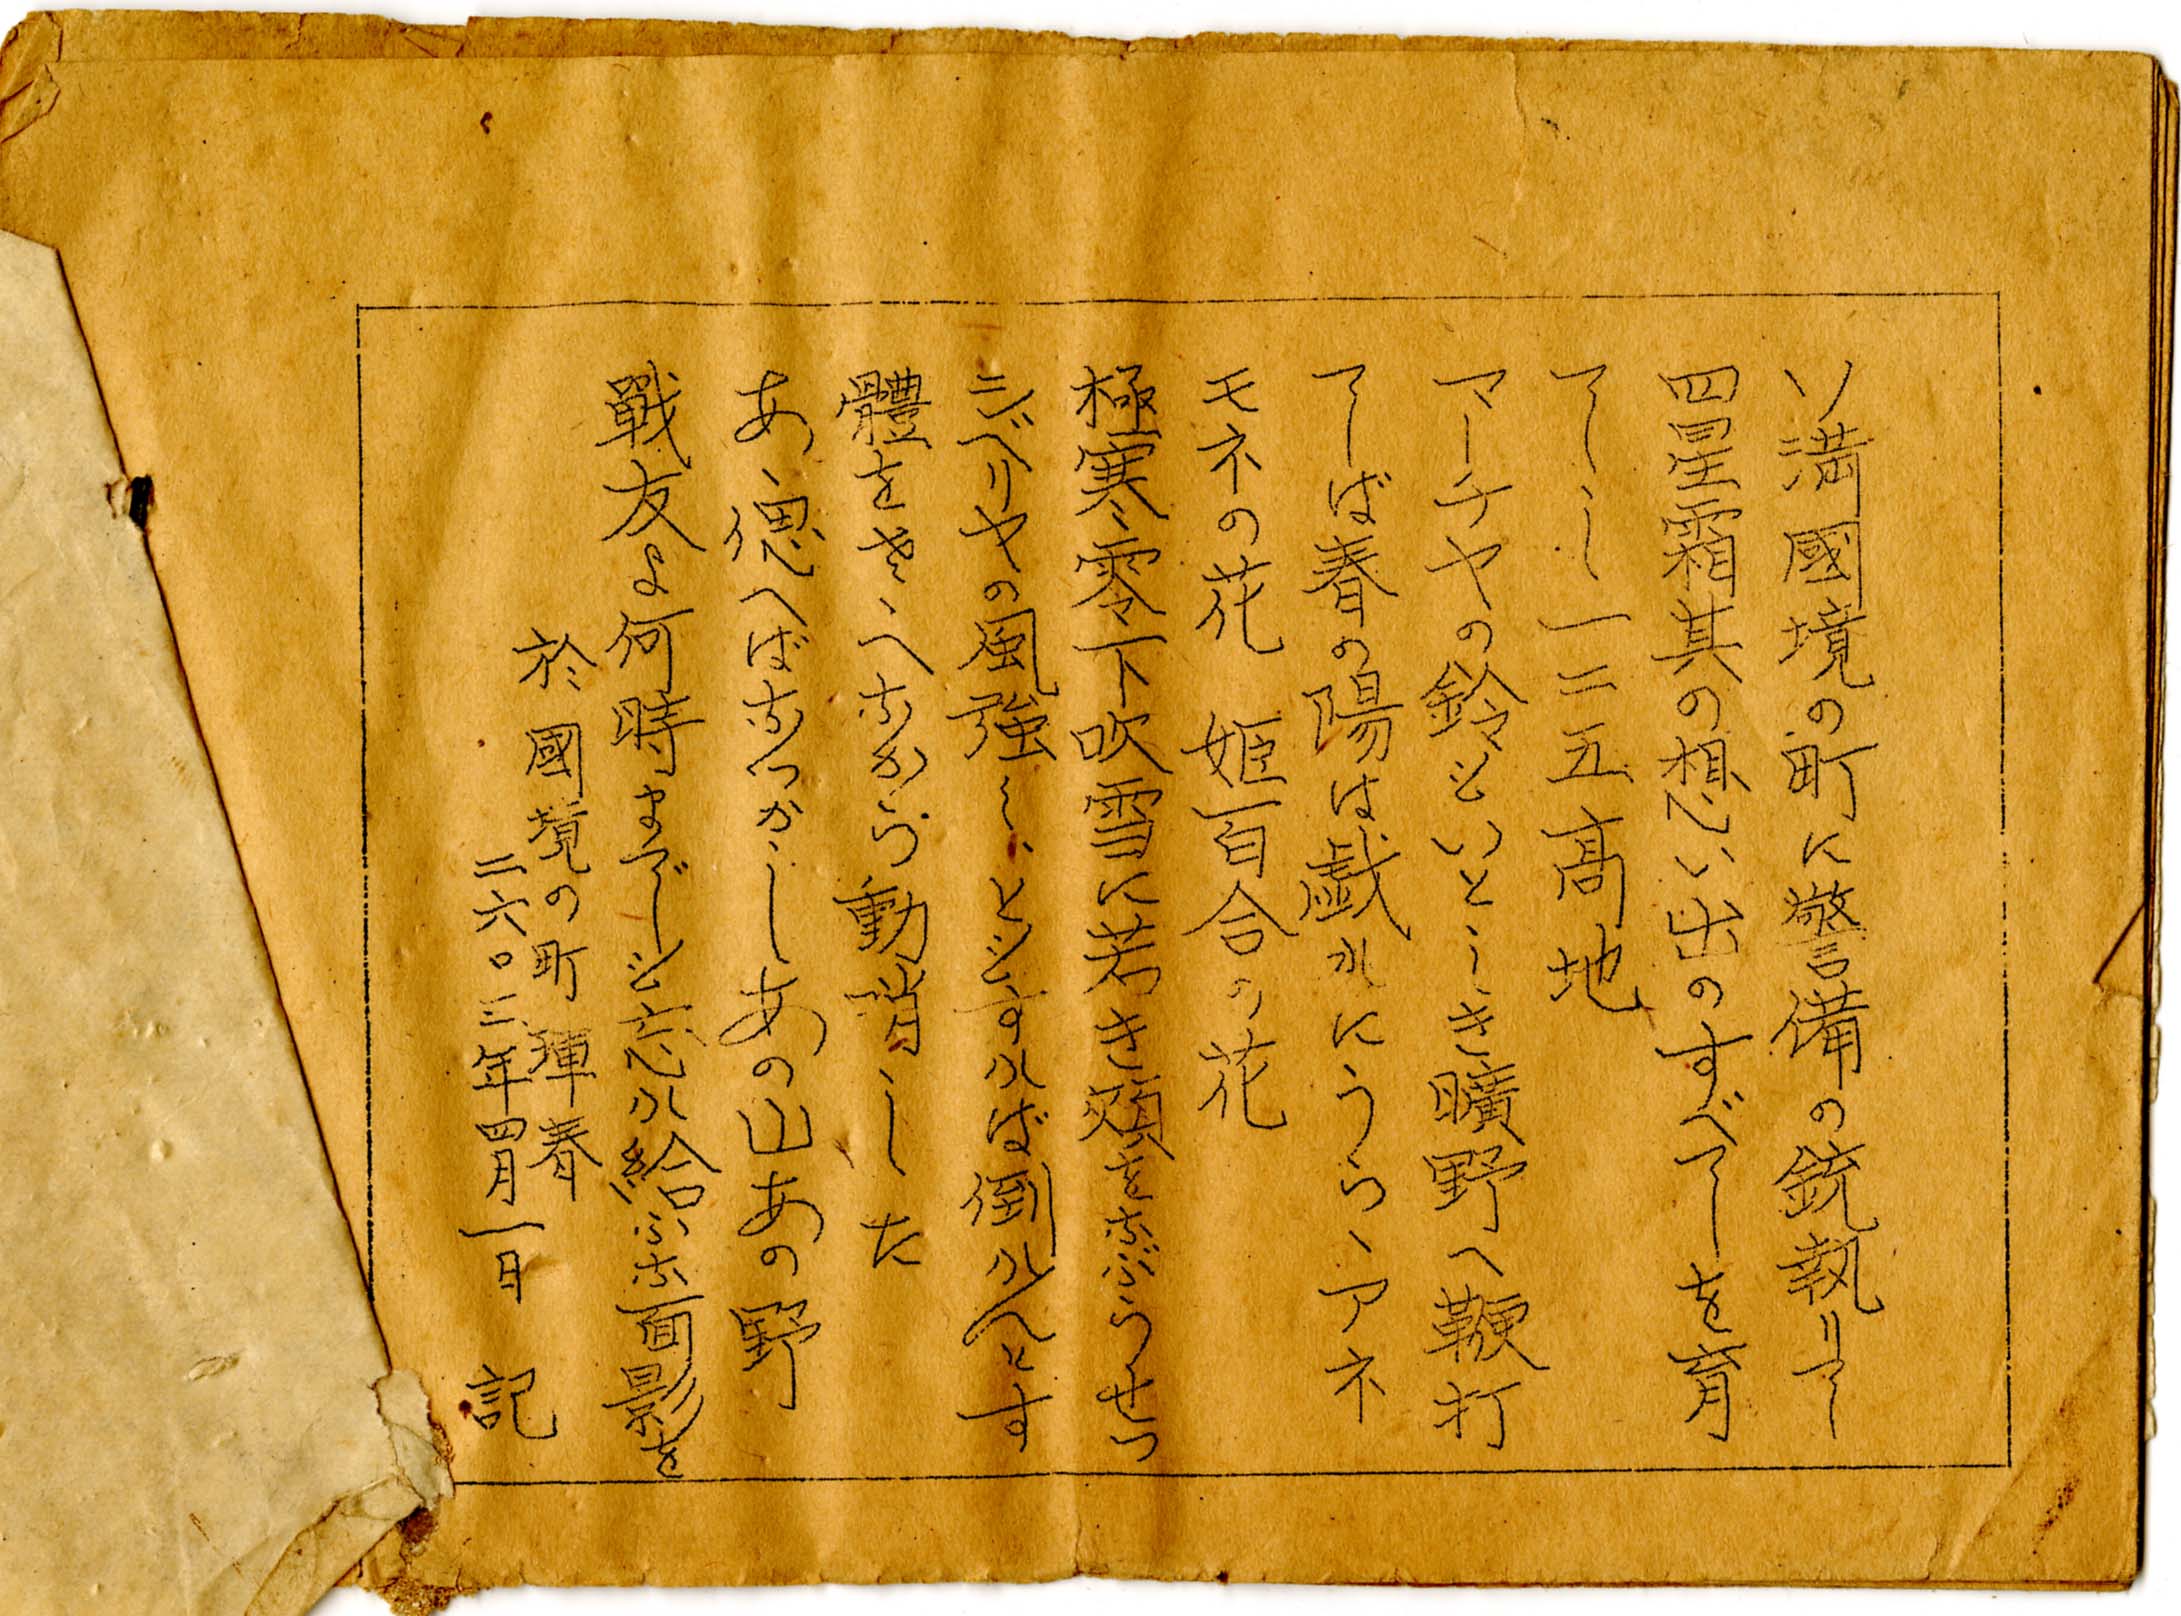 ソ満國境の町に警備の銃執りて
四星霜其の想い出のすべてを育
てし一二五高地
マーチヤの鈴もいとゝき曠野へ鞭打
てば春の陽は戯れにうらゝアネ
モネの花 姫百合の花
極寒零下吹雪に若き頬をなぶらせつ
シベリヤの風強く、ともすれば倒れんとす
體をさゝへながら動哨した
あゝ偲へばなつかしあの山あの野
戰友よ何時までも忘れ給ふな面影を
於國境の町琿春
二六〇三年四月一日 記